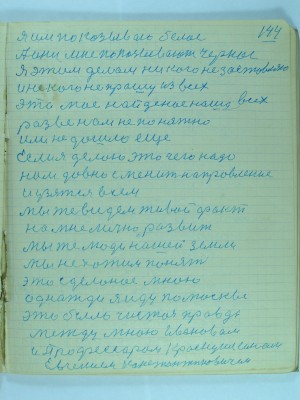 144
Я им показываю белое
А они мне показывают черное
Я этим делам никого незаставляю
и некого не прошу из вас
это мое найденое нашо всих
разве вам не понятно
или не дошло еще
Если я делаю это чего надо
нам давно сменит направление
и взятся всем
мы же видем живой факт
на мне лично развит
мы же люди нашей земли
мы не хотим понят
это сделоное мною
однажди я иду по москве
это бысль чистая правда
между мною Ивановам
и Профессарам
Евгением Константиновичем